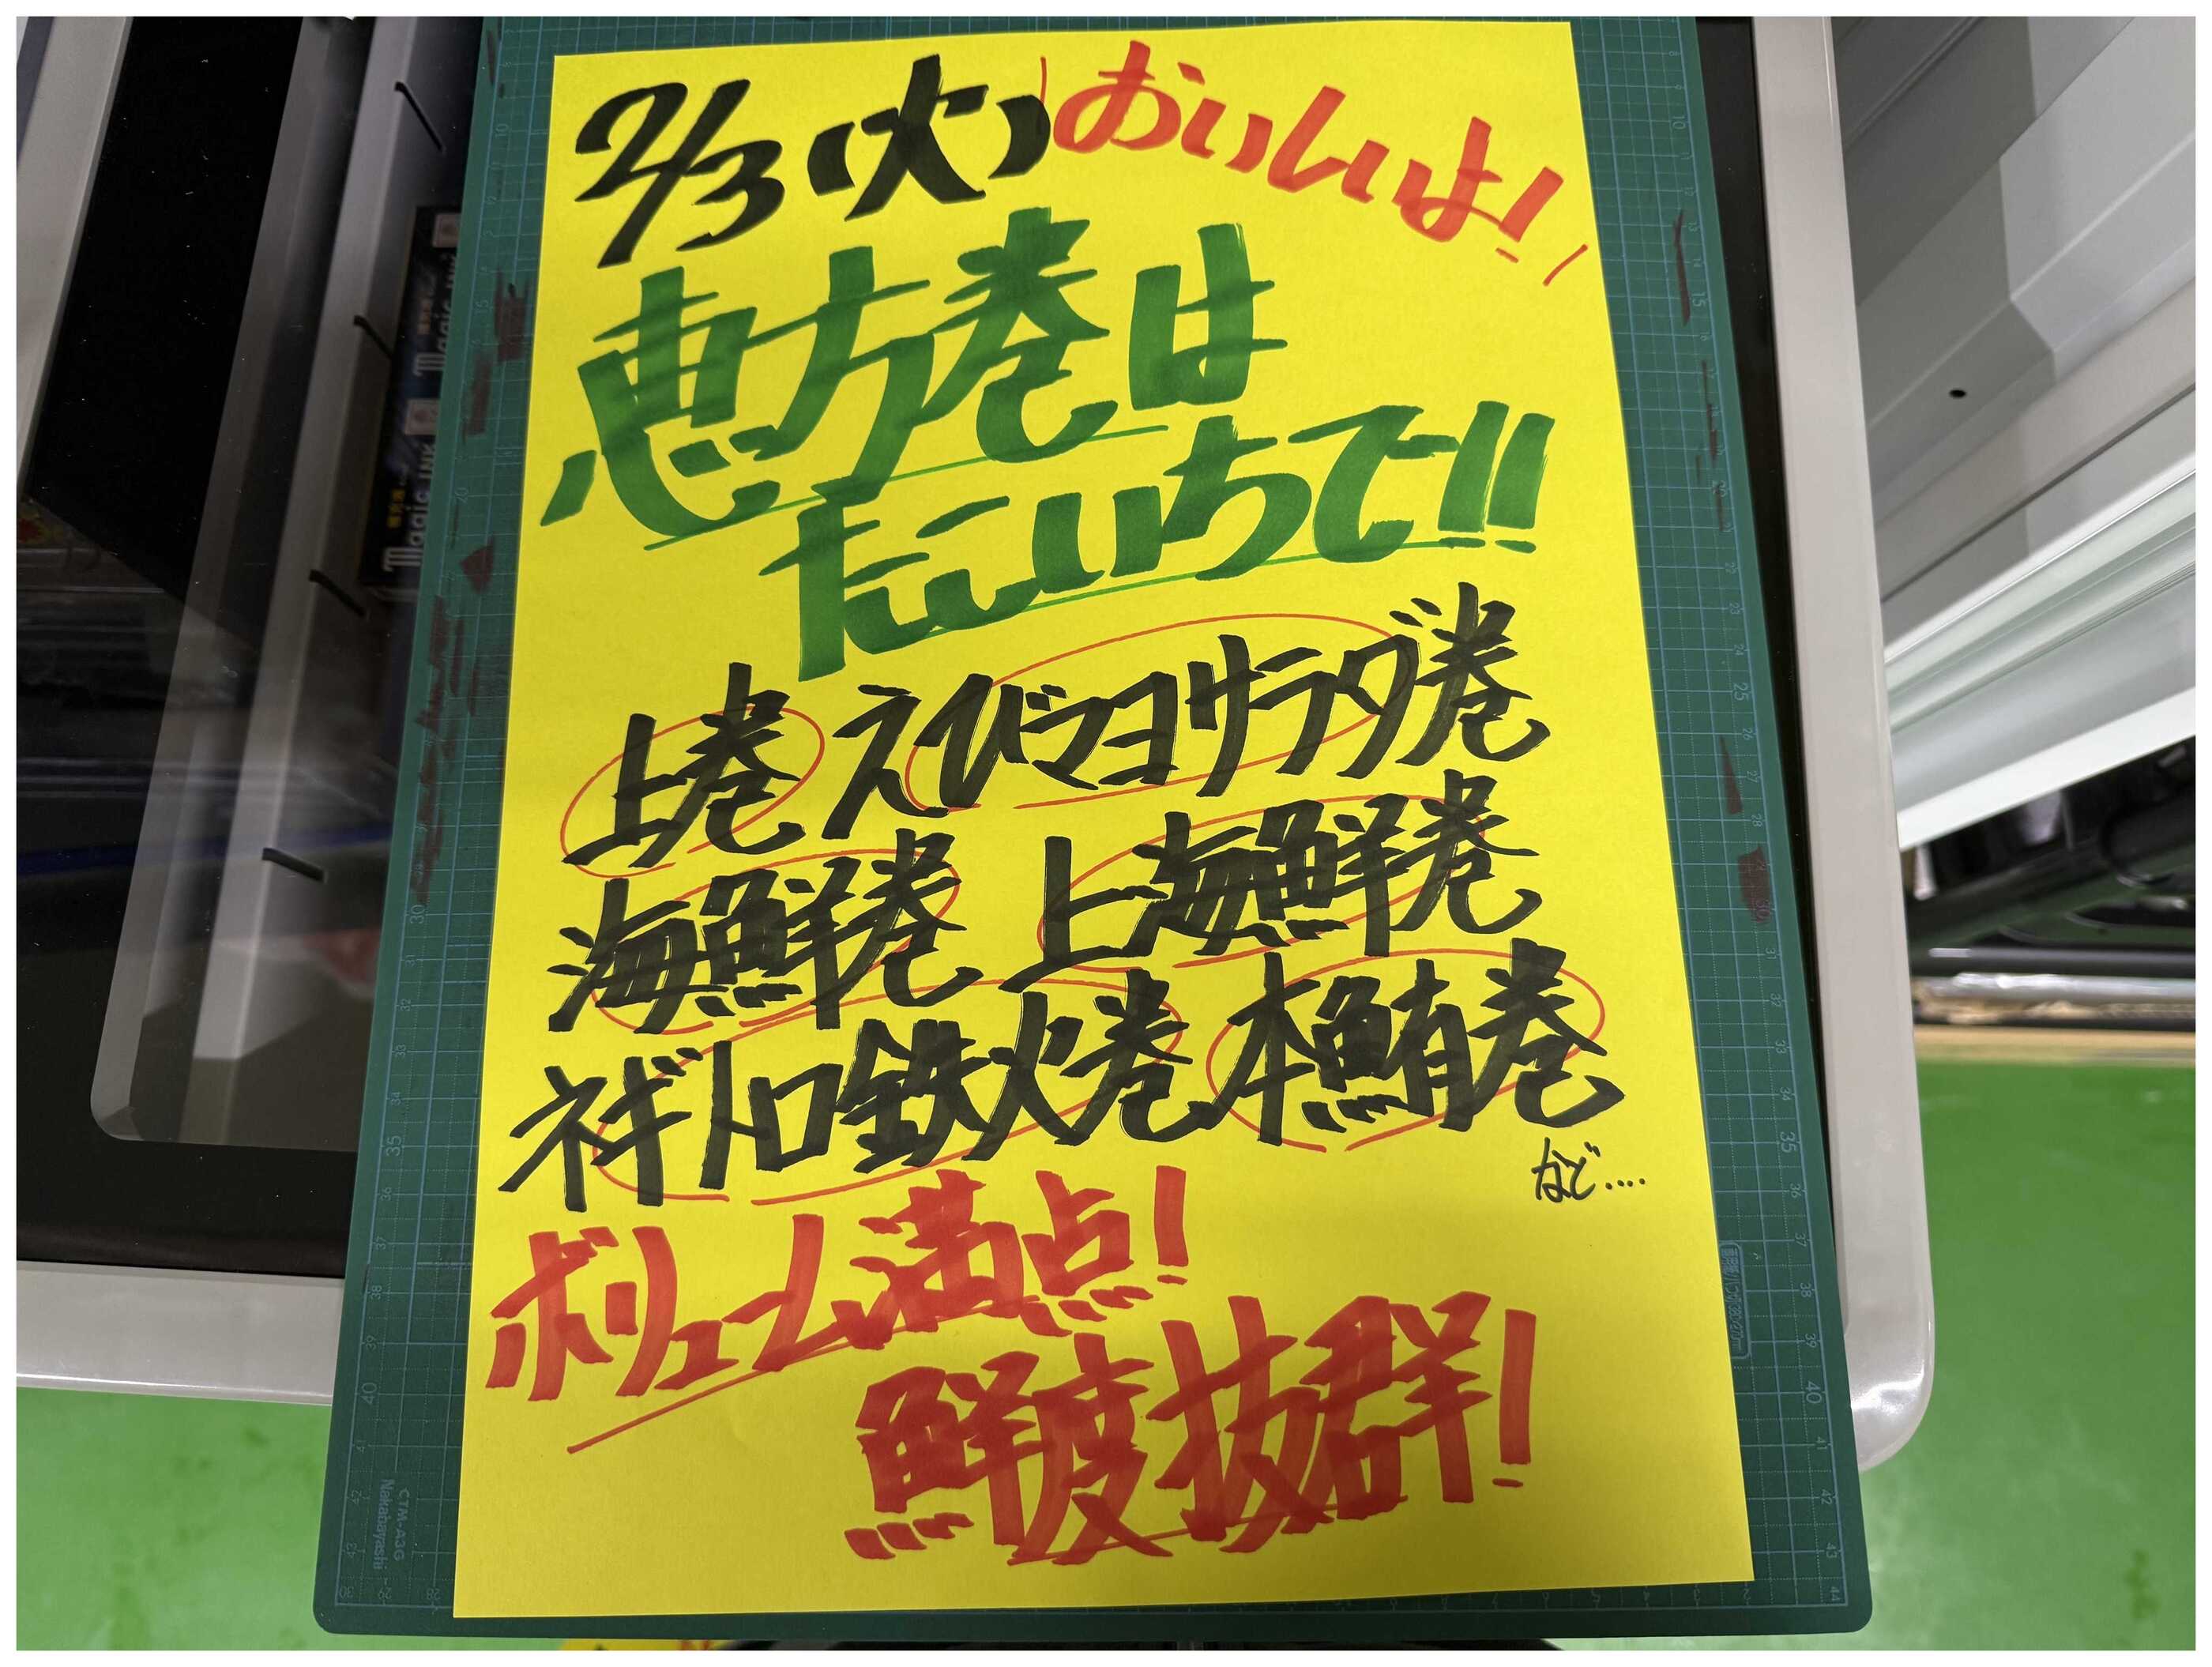 2/3(火) おいしいよ!
恵方巻は
だいいちで!!
上巻 えびマヨサラダ巻
海鮮巻 上海鮮巻
ネギトロ鉄火巻 本鮪巻
など....
ボリューム満点!
鮮度抜群!
Magic INK
Magic INK
CTM-A3G
Nakabayashi